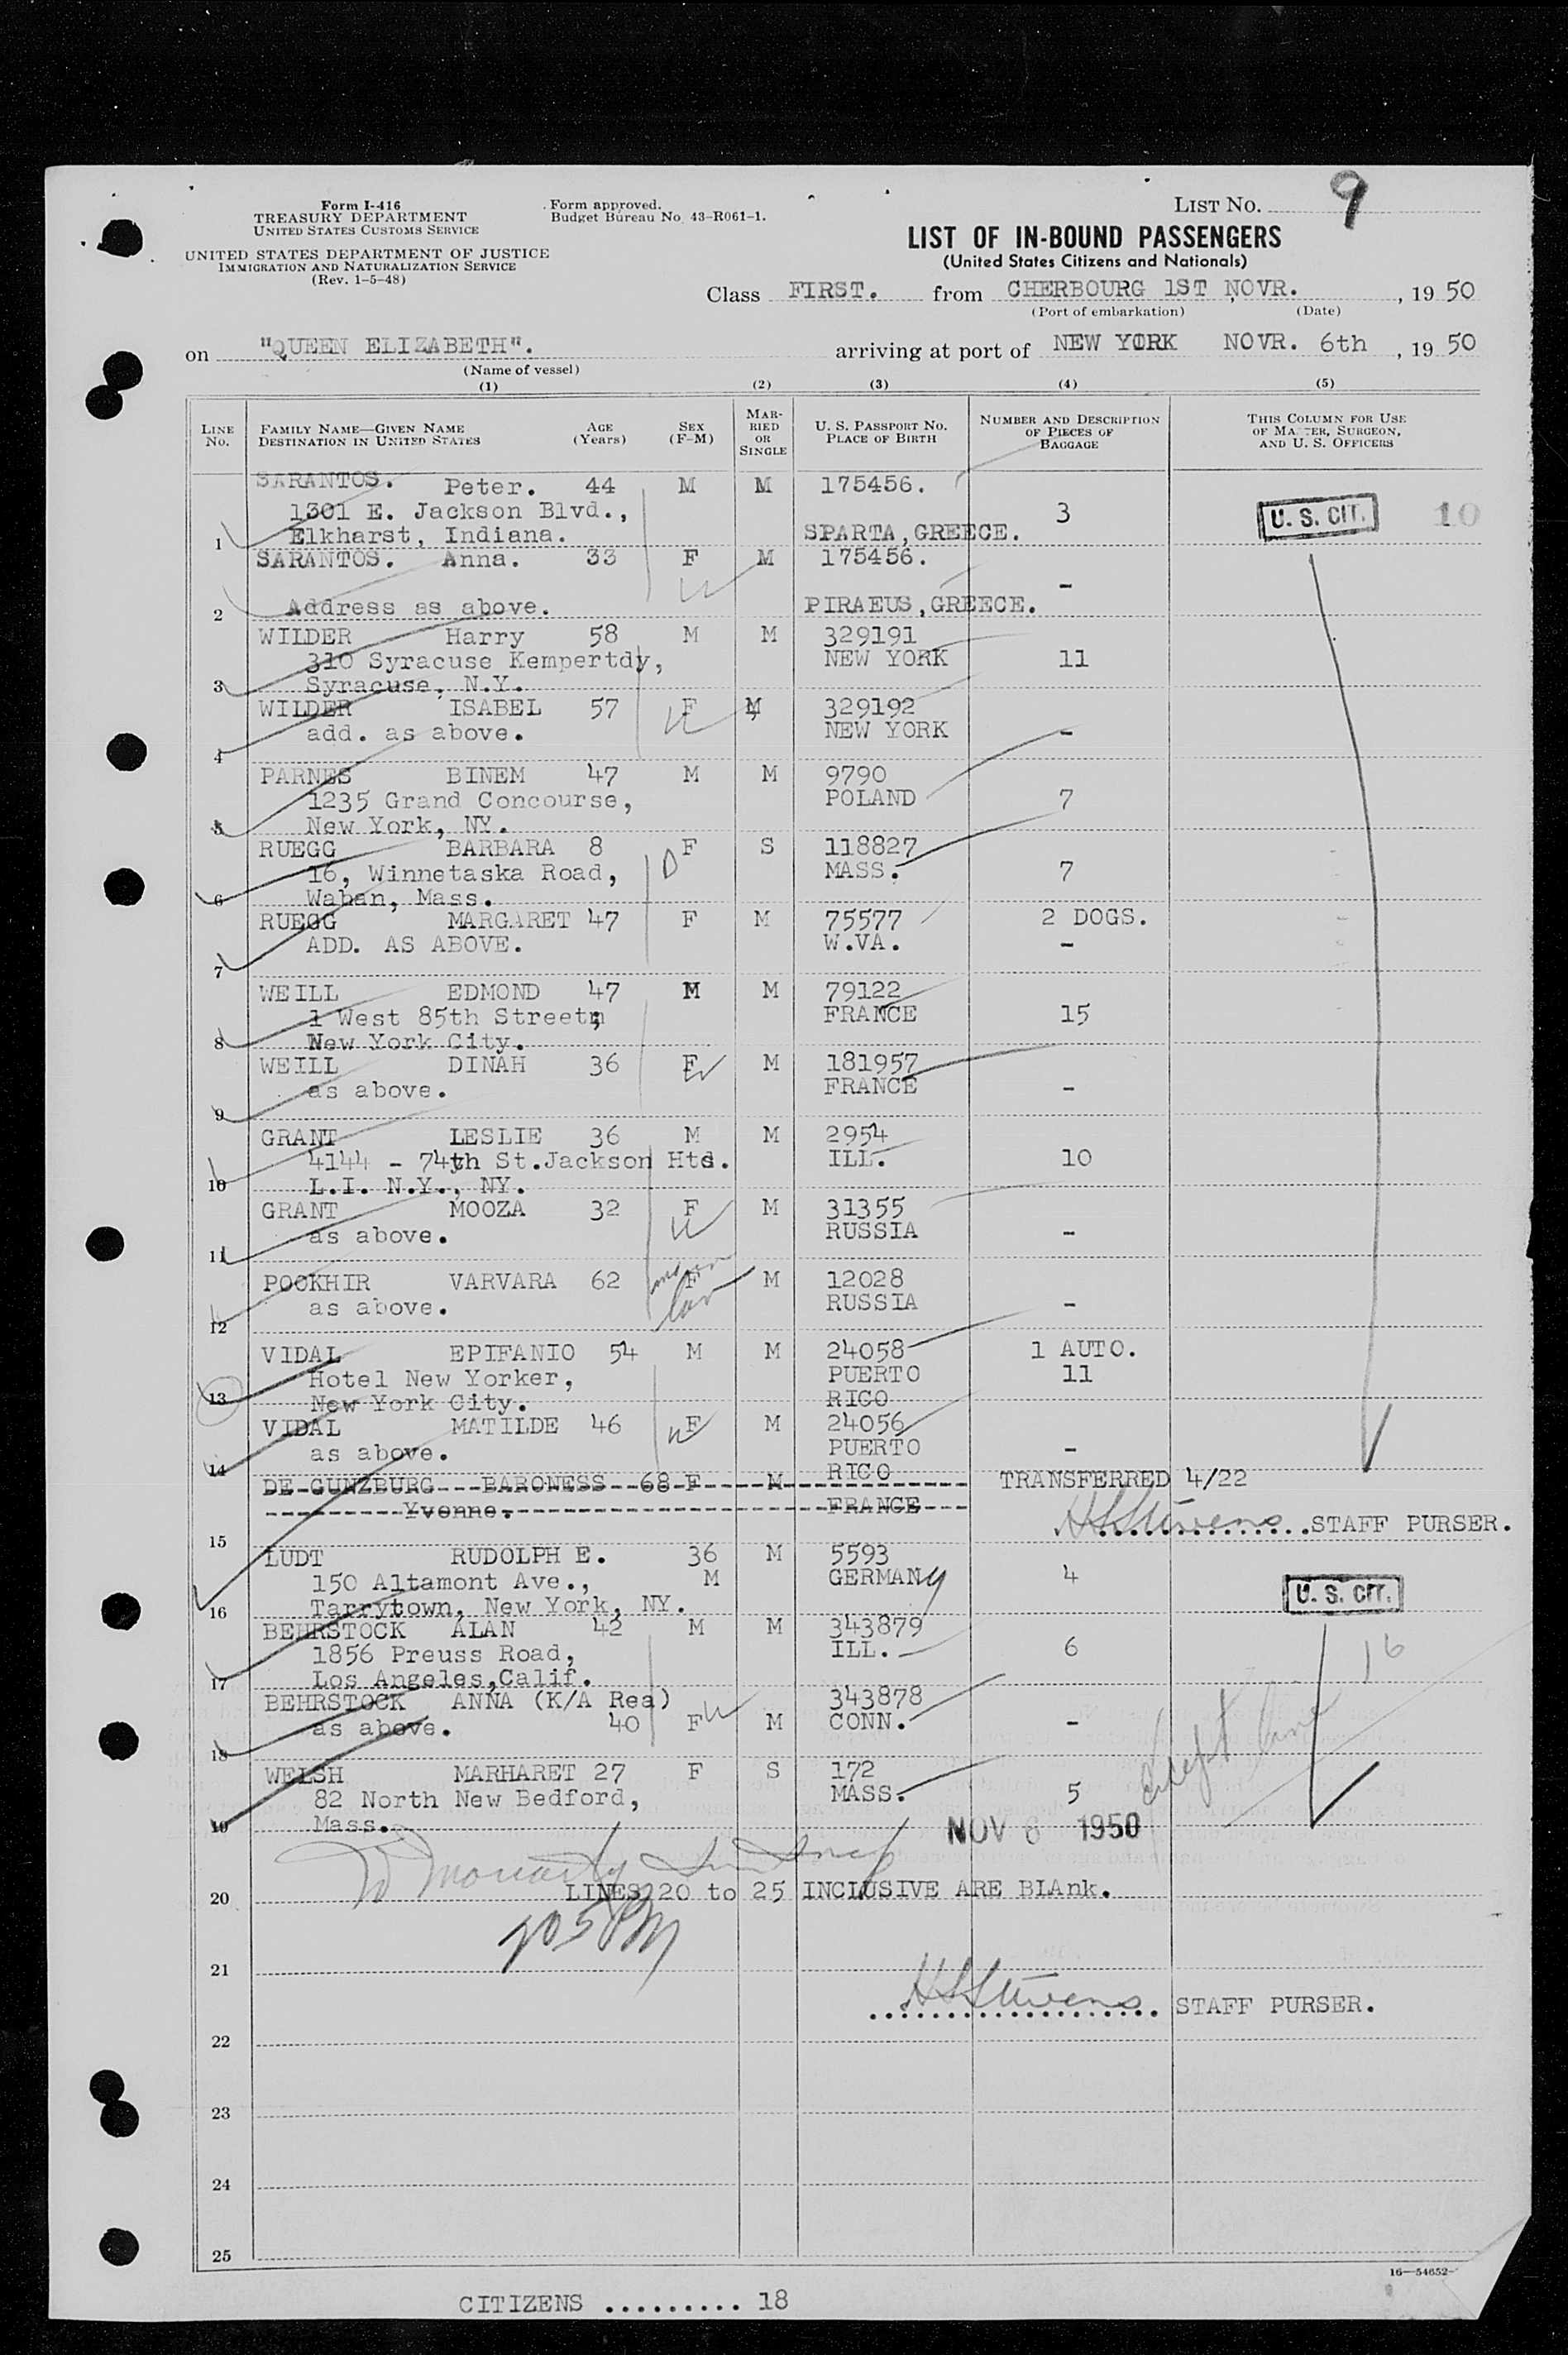 Form I-416
TREASURY DEPARTMENT
UNITED STATES CUSTOMS SERVICE
UNITED STATES DEPARTMENT OF JUSTICE
IMMIGRATION AND NATURALIZATION SERVICE
(Rev. 1-5-48)
Form approved.
Budget Bureau No. 43-R061-1.
LIST No. 9
LIST OF IN-BOUND PASSENGERS
(United States Citizens and Nationals)
Class FIRST. from CHERBOURG 1ST NOVR. , 19 50
(Port of embarkation) (Date)
on "QUEEN ELIZABETH". arriving at port of NEW YORK NOVR. 6th , 19 50
(Name of vessel)
(1) (2) (3) (4) (5)
LINE No. FAMILY NAME—GIVEN NAME DESTINATION IN UNITED STATES AGE (Years) SEX (F-M) MARRIED OR SINGLE U. S. PASSPORT No. PLACE OF BIRTH NUMBER AND DESCRIPTION OF PIECES OF BAGGAGE THIS COLUMN FOR USE OF MASTER, SURGEON, AND U. S. OFFICERS
SARANTOS. Peter. 44 M M 175456.
1301 E. Jackson Blvd., 3 U. S. CIT. 10
1 Elkharst, Indiana. SPARTA, GREECE.
SARANTOS. Anna. 33 F M 175456.
-
2 Address as above. PIRAEUS, GREECE.
WILDER Harry 58 M M 329191
310 Syracuse Kempertdy, NEW YORK 11
3 Syracuse, N.Y.
WILDER ISABEL 57 F M 329192
add. as above. NEW YORK -
4
PARNES BINEM 47 M M 9790
1235 Grand Concourse, POLAND 7
5 New York, NY.
RUEGG BARBARA 8 F S 118827
16, Winnetaska Road, MASS. 7
6 Waban, Mass.
RUEGG MARGARET 47 F M 75577 2 DOGS.
ADD. AS ABOVE. W.VA. -
7
WEILL EDMOND 47 M M 79122
1 West 85th Street, FRANCE 15
8 New York City.
WEILL DINAH 36 F M 181957
as above. FRANCE -
9
GRANT LESLIE 36 M M 2954
4144 - 74th St. Jackson Hts. ILL. 10
10 L.I. N.Y., NY.
GRANT MOOZA 32 F M 31355
as above. RUSSIA -
11
POCKHIR VARVARA 62 F M 12028
as above. RUSSIA -
12
VIDAL EPIFANIO 54 M M 24058 1 AUTO.
Hotel New Yorker, PUERTO 11
13 New York City. RICO
VIDAL MATILDE 46 F M 24056
as above. PUERTO -
14 RICO
DE GUNZBURG BARONESS 68 F M TRANSFERRED 4/22
Yvonne. FRANCE
15 HSStevens STAFF PURSER.
LUDT RUDOLPH E. 36 M 5593
150 Altamont Ave., M GERMANY 4 U. S. CIT.
16 Tarrytown, New York, NY.
BEHRSTOCK ALAN 42 M M 343879
1856 Preuss Road, ILL. 6 16
17 Los Angeles, Calif.
BEHRSTOCK ANNA (K/A Rea) 343878
as above. 40 F M CONN. -
18
WELSH MARHARET 27 F S 172
82 North New Bedford, MASS. 5
19 Mass. NOV 6 1950
20 LINES 20 to 25 INCLUSIVE ARE BLAnk.
205 PM
21
HSStevens STAFF PURSER.
22
23
24
25
16—54652-
CITIZENS ......... 18